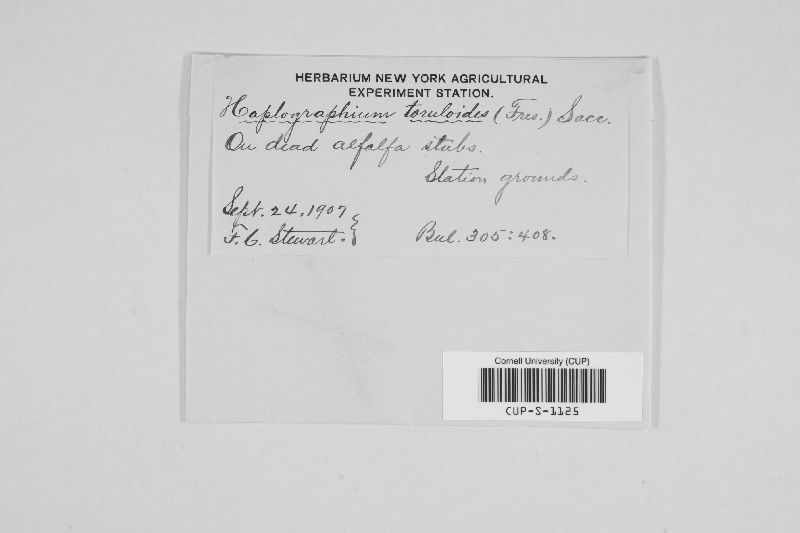 HERBARIUM NEW YORK AGRICULTURAL
EXPERIMENT STATION.
Haplographium toruloides (Fres.) Sacc.
On dead alfalfa stubs.
Station grounds.
Sept. 24, 1907
F. C. Stewart.
Bul. 305:408.
Cornell University (CUP)
CUP-S-1125